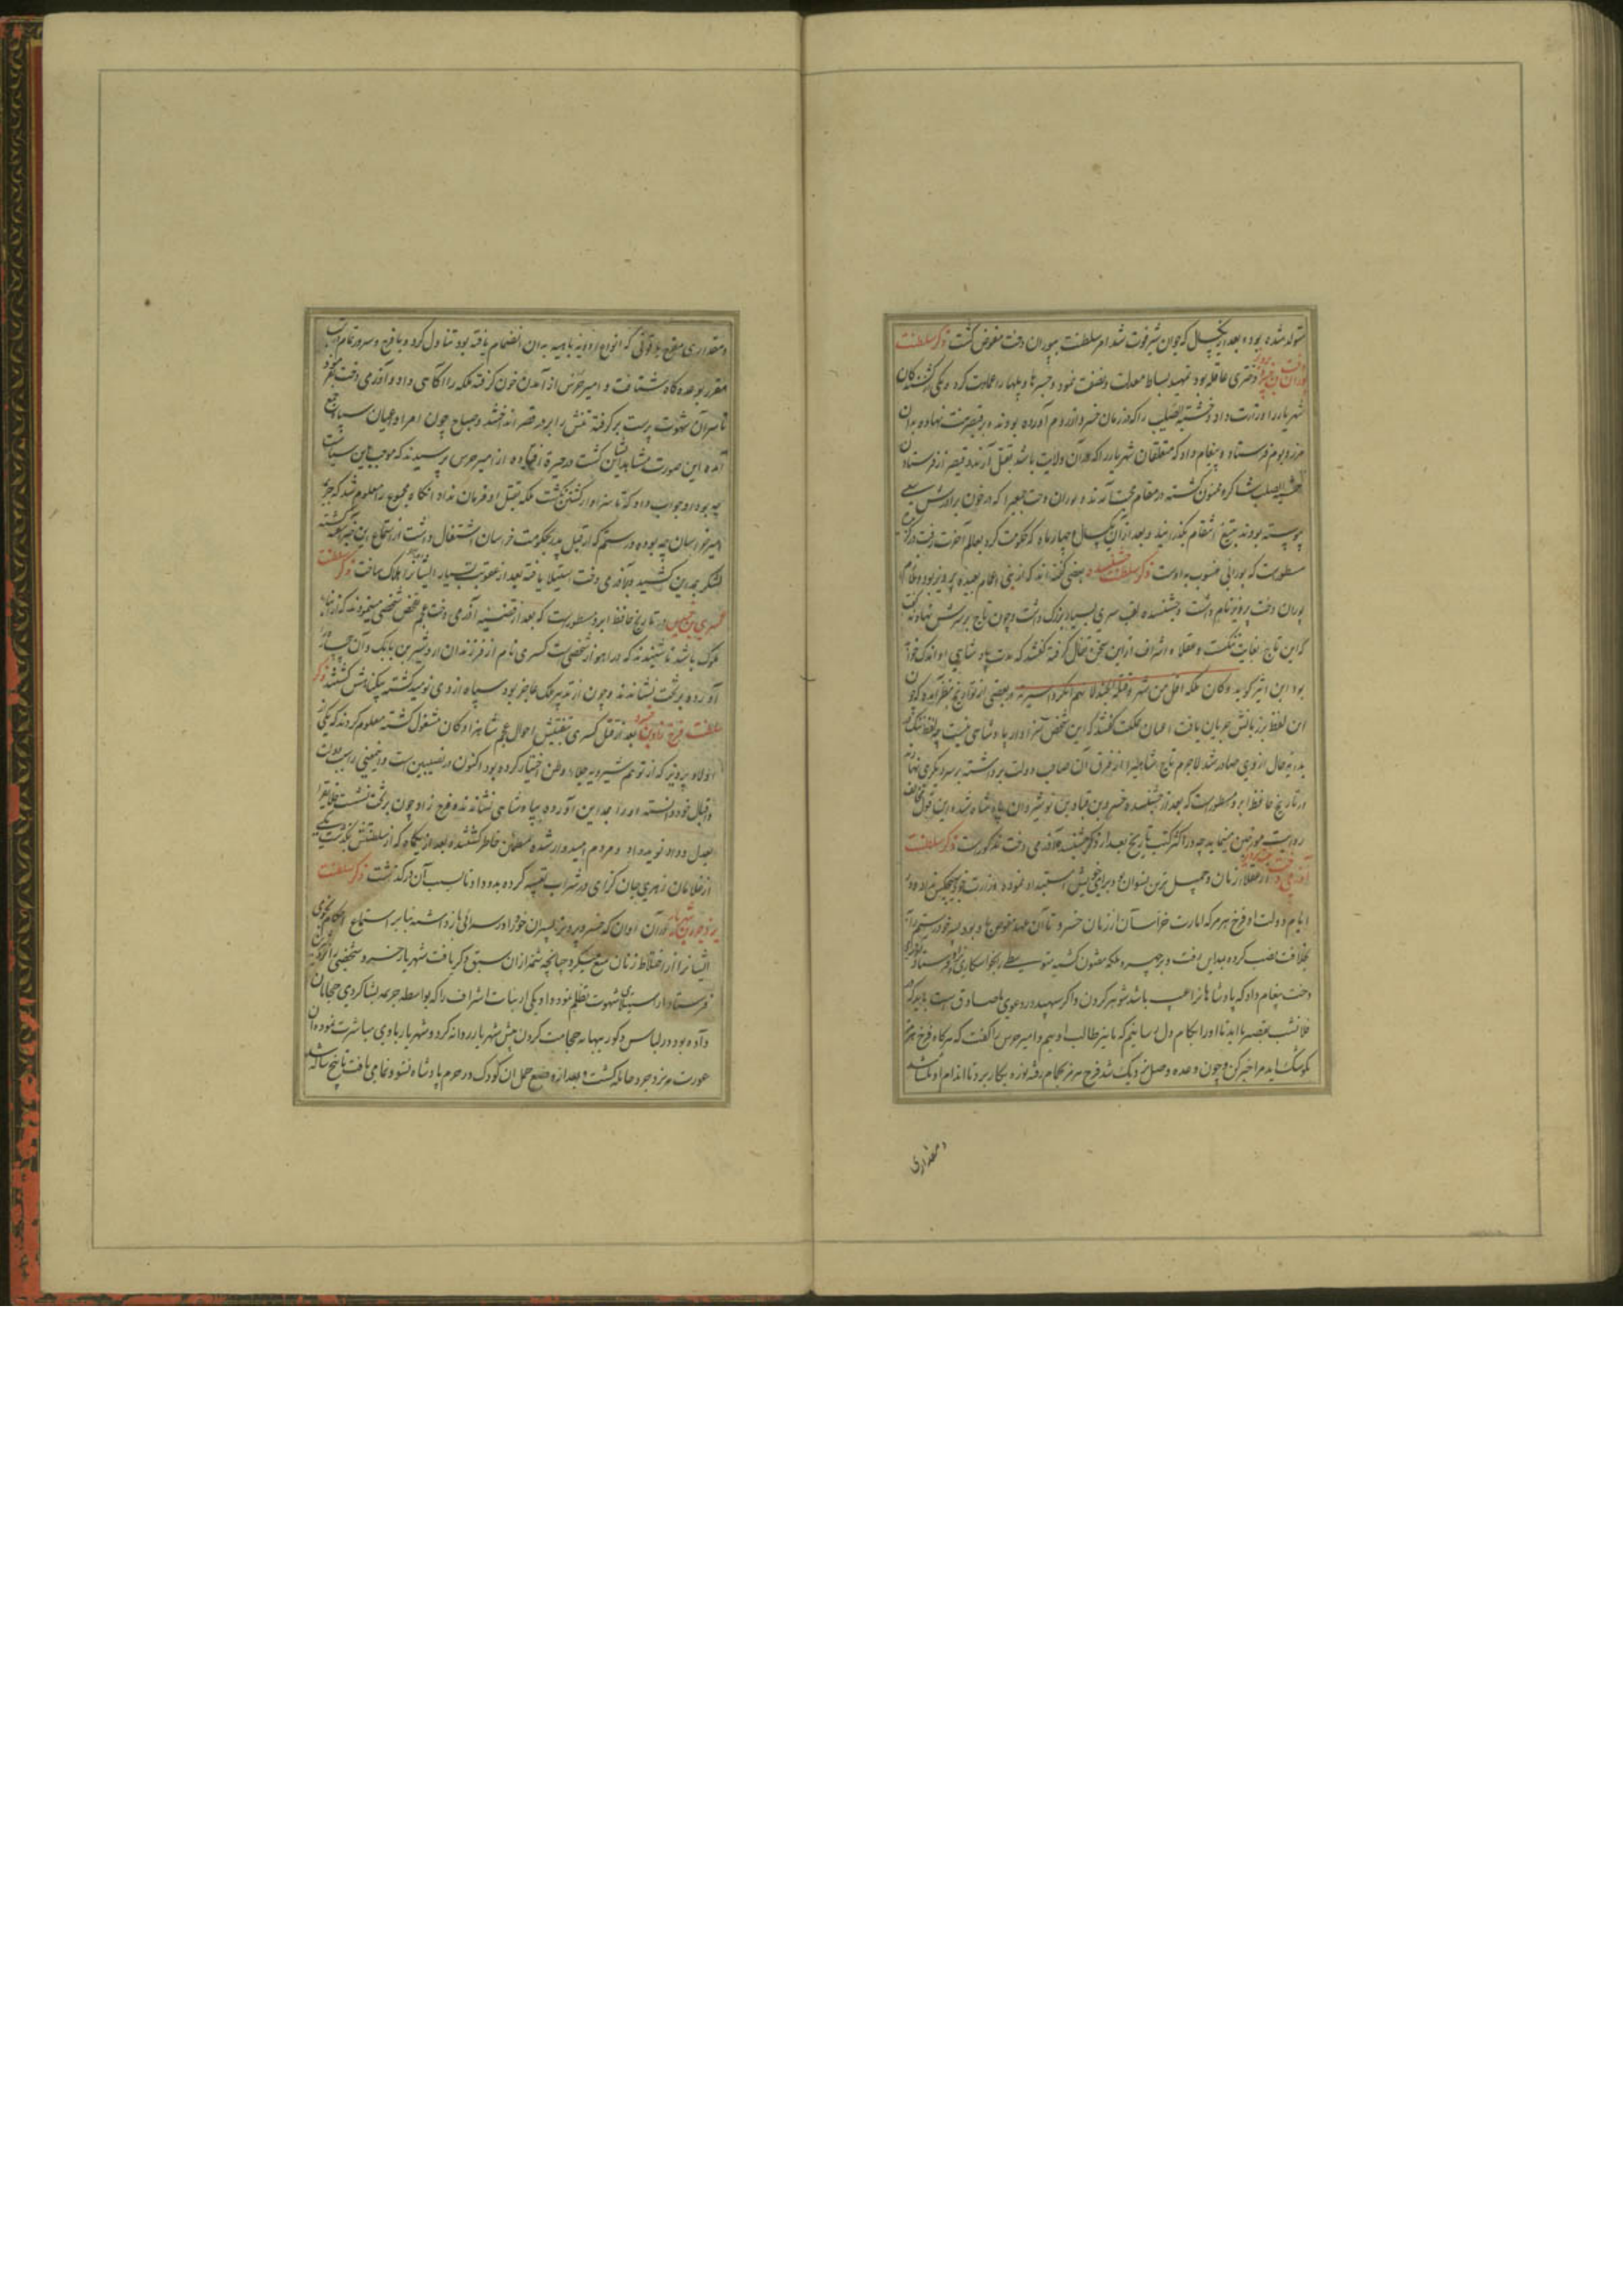 متولد شده بود و بعد از یکسال که جوان شیر فوت شد امر سلطنت بپوران دخت مفوض کشت ذکر سلطنت
پوران دخت بن خسرو پرویز دختری عاقله بود تمهید بساط معدلت و نصفت نمود و جسرها و پلها را عمارت کرد و یکی از کشندکان
شهریار را وزارت داد و خشبة الصلیب را که در زمان خسرو از روم آورده بودند بر قیصر منت نهاده بدان
مرز و بوم فرستاد و پیغام داد که متعلقان شهریار را که در آن ولایت باشد بقتل آرند و قیصر از فرستادن
خشبة الصلیب شاکر و ممنون کشته در مقام محبت آمد و پوران دخت جمعی را که در خون برادرش سعی
پیوسته بودند بتیغ انتقام بگذرانید و بعد از آن یکسال و چهار ماه که حکومت کرد بعالم آخرت رفت در
مسطورست که بورانی منسوب به اوست ذکر سلطنت جشنسده بعضی کفته اند که از بنی اعمام بعیده پرویز بود و
پوران دخت پرویز نام داشت و جشنسده لقب سری بسیار بزرک داشت و چون تاج بر سرش نهادند کفت
که این تاج بغایت تنکست و عقلا و اشراف از این سخن تفال کرفته کفتند که مدت پادشاهی او اندک خواهد
بود ابن اثیر کوید وکان ملکه اقل من شهر و بعضی از تواریخ بنظر آمده که چون
این لفظ بر زبانش جریان یافت اعیان مملکت کفتند که این شخص سزاوار پادشاهی نیست چه لفظ تنک
بدین حال از وی صادر شد لاجرم تاج شاهی را از فرق آن صاحب دولت برداشته بر سر دیکری نهادند
در تاریخ حافظ ابرو مسطورست که بعد از جشنسده خسرو بن قباد بن نوشیروان پادشاه شد و این قول مخالف
روایت مورخین مینماید چه در اکثر کتب تاریخ بعد از ذکر جشنسده آزرمی دخت مذکورست ذکر سلطنت
آزرمی دخت از عقلاء زمان و جمیل ترین نسوان بود برای خویش استبداد نموده وزارت خود بهیچکس نداد و در
ایام دولت او فرخ هرمز که امارت خراسان از زمان خسرو تا آن عهد مفوض باو بود پسر خود رستم را
بخلافت نصب کرده بمداین رفت و بر چهره ملکه مفتون کشته متوسطی بخواستکاری او فرستاد آزرمی
دخت پیغام داد که پادشاهانرا عیب باشد شوهر کردن و اکر سپهبد در دعوی ما صادق است باید که
فلان شب بقصر ما اید تا او را بکام دل رسانیم که ما نیز طالب اوییم و امیر حرس را کفت که هرکاه فرخ هرمز
بکوشک اید مرا خبر کن و چون وعده وصل نزدیک شد فرخ هرمز بحمام رفته نوره بکار برد تا اندام او
و مقداری
و مقداری مفرح یاقوتی که انواع ادویه باهیه به ان انضمام یافته بود تناول کرد و با فرح و سرور تمام
مقرر بوعده کاه شتافت و امیر حرس از آمدن خون کرفته ملکه را آکاهی داد و آزرمی دخت بفرمود
تا سر آن شهوت پرست بر کرفته تنش را بر در قصر انداختند و صباح چون امرا و اعیان سپاه جمع
آمده این صورت مشاهد ایشان کشت در حیرت افتاده از امیر حرس پرسیدند که موجب این سیاست
چه بود او جواب داد که تا سزاوار کشتن نکشت ملکه بقتل او فرمان نداد آنکاه مجموع را معلوم شد که جریمه
امیر خراسان چه بوده و رستم که از قبل پدر بحکومت خراسان اشتغال داشت از استماع این خبر آشفته کشته
لشکر بمداین کشید و بر آزرمی دخت استیلا یافته بعد از عقوبت بسیار ایشانرا هلاک ساخت ذکر سلطنت
کسری در تاریخ حافظ ابرو مسطورست که بعد از قضیه آزرمی دخت عجم تفحص شخصی مینمودند که از ابناء
ملوک باشد تا شنیدند که در اهواز شخصی است کسری نام از فرزندان اردشیر بن بابک و آن جماعت
آورده بر تخت نشاندند و چون از تدبیر ملک عاجز بود سپاه از وی نومید کشته بیکناهش کشتند ذکر
سلطنت فرخ زاد بن خسرو بعد از قتل کسری بتفتیش احوال عجم شاهزادکان مشغول کشته معلوم کردند که یکی از
اولاد پرویز که از توهم شیرویه جلاء وطن اختیار کرده بود اکنون در نصیبین است و اینمعنی را سبب دولت
و اقبال خود دانسته او را بمداین آورده بپادشاهی نشاندند و فرخ زاد چون بر تخت نشست خلایق را
بعدل و داد نوید داد و مردم امیدوار شده مطمئن خاطر کشتند و بعد از یکماه که از سلطنتش بکذشت یکی
از غلامان زهری جان کزای در شراب تعبیه کرده بدو داد تا بسبب آن در کذشت ذکر سلطنت
یزدجرد بن شهریار در آن اوان که خسرو پرویز پسران خود را در سرائی باز داشته بنا بر استماع احکام نجومی
ایشانرا از اختلاط زنان منع میکرد چنانچه شمه از آن سبق ذکر یافت شهریار بن خسرو شخصی را نزد شیرین
فرستاد از استیلای شهوت تظلم نمود و او یکی از بنات اشراف را که بواسطه جریمه بشاکردی حجامان
داده بود در لباس ذکور ببهانه حجامت کردن پیش شهریار روانه کرد و شهریار با وی مباشرت نمود و آن
عورت بیزدجرد حامله کشت و بعد از وضع حمل ان کودک در حرم پادشاه نشو و نما می یافت تا پنج ساله شد